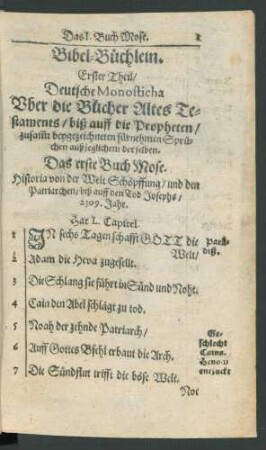 Das I. Buch Mose. 1
Bibel-Büchlein.
Erster Theil/
Deutsche Monosticha
Vber die Bücher Altes Te-
staments/ biß auff die Propheten/
zusamt beygezeichneten fürnehmen Sprü-
chen auß jeglichem derselben.
Das erste Buch Mose.
Historia von der Welt Schöpffung/ und den
Patriarchen/ biß auff den Tod Josephs/
2309. Jahr.
Hat L. Capitel
1 IN sechs Tagen schafft GOTT die Welt/
Paradiß.
2 Adam die Heva zugesellt.
3 Die Schlang sie führt in Sünd und Noht.
4 Cain den Abel schlägt zu tod.
5 Noah der zehnde Patriarch/
Geschlecht
Cains.
Henoch
entzuckt
6 Auff Gottes Bfehl erbaut die Arch.
7 Die Sündflut trifft die böse Welt.
Noe